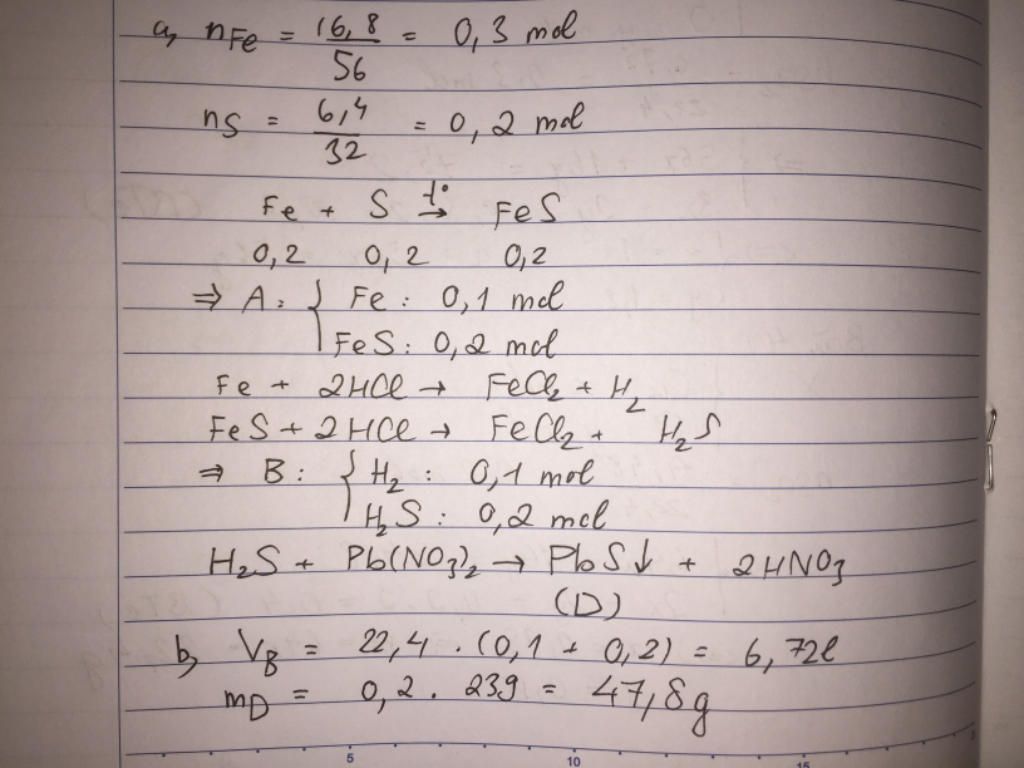 a, nFe = 16,8/56 = 0,3 mol
nS = 6,4/32 = 0,2 mol
Fe + S t°→ FeS
0,2 0,2 0,2
⇒ A: { Fe: 0,1 mol
FeS: 0,2 mol
Fe + 2HCl → FeCl₂ + H₂
FeS + 2HCl → FeCl₂ + H₂S
⇒ B: { H₂: 0,1 mol
H₂S: 0,2 mol
H₂S + Pb(NO₃)₂ → PbS↓ + 2HNO₃
(D)
b, VB = 22,4 . (0,1 + 0,2) = 6,72l
mD = 0,2 . 239 = 47,8g
5 10 15